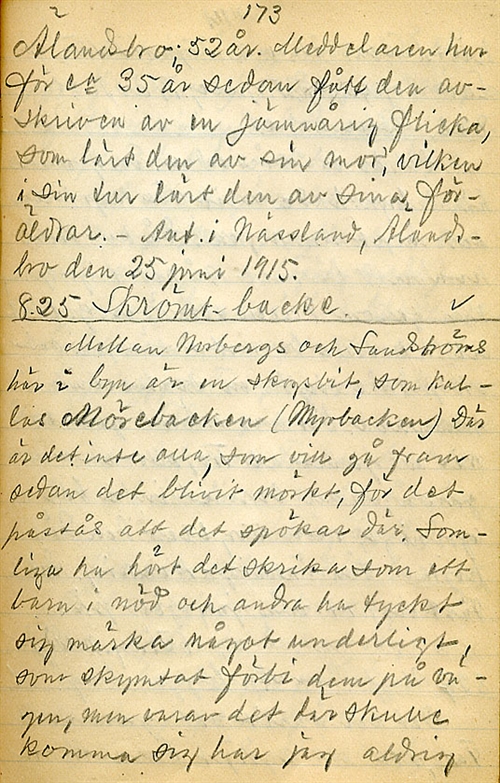 173
Ålandsbro; 52 år. Meddelaren har
för ca 35 år sedan fått den av-
skriven av en jämnårig flicka,
som lärt den av sin mor, vilken
i sin tur lärt den av sina för-
äldrar. - Ant. i Nässland, Ålands-
bro den 25 juni 1915.
8.25 Skrömt-backe. ✓
Mellan Norbergs och Sundströms
här i byn är en skogsbit, som kal-
las Mörebacken (Myrbacken) Där
är det inte alla, som vill gå fram
sedan det blivit mörkt, för det
påstås att det spökar där. Som-
liga ha hört det skrika som ett
barn i nöd och andra ha tyckt
sig märka något underligt,
som skymtat förbi dem på vä-
gen, men varav det där skulle
komma sig har jag aldrig